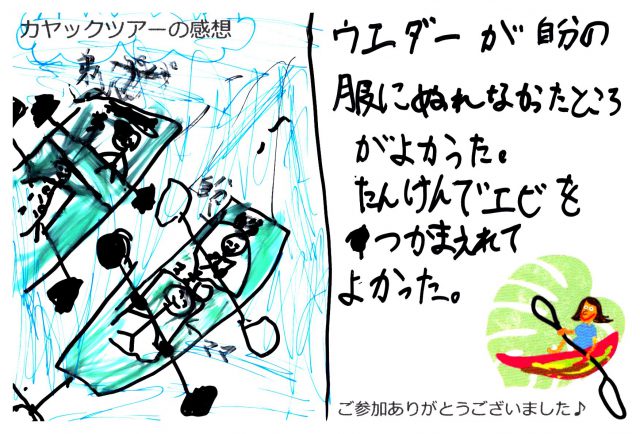 カヤックツアーの感想
弟
自分
ママ
ウエダーが自分の
服にぬれなかったところ
がよかった。
たんけんでエビを
つかまえれて
よかった。
ご参加ありがとうございました♪